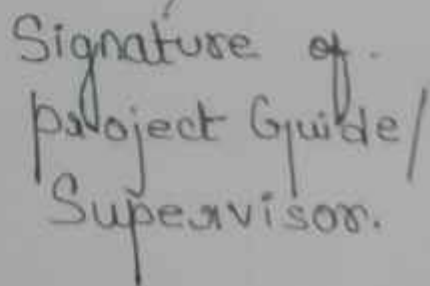 Signature of
project Guide/
Supervisor.